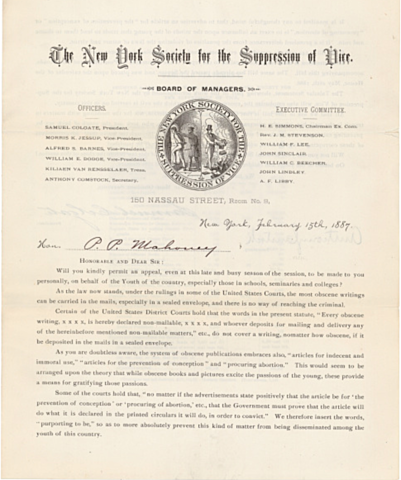 The New York Society for the Suppression of Vice.
BOARD OF MANAGERS.
OFFICERS.
SAMUEL COLGATE, President.
MORRIS K. JESSUP, Vice-President.
ALFRED S. BARNES, Vice-President.
WILLIAM E. DODGE, Vice-President.
KILIAEN VAN RENSSELAER, Treas.
ANTHONY COMSTOCK, Secretary.
THE NEW YORK SOCIETY FOR THE SUPPRESSION OF VICE
EXECUTIVE COMMITTEE.
H. E. SIMMONS, Chairman Ex. Com.
Rev. J. M. STEVENSON.
WILLIAM P. LEE,
JOHN SINCLAIR.
WILLIAM C. BEECHER,
JOHN LINDLEY.
A. F. LIBBY.
150 NASSAU STREET, Room No. 9,
New York, February 15th, 1887.
Hon P. P. Mahoney :
HONORABLE AND DEAR SIR:
Will you kindly permit an appeal, even at this late and busy season of the session, to be made to you
personally, on behalf of the Youth of the country, especially those in schools, seminaries and colleges?
As the law now stands, under the rulings in some of the United States Courts, the most obscene writings
can be carried in the mails, especially in a sealed envelope, and there is no way of reaching the criminal.
Certain of the United States District Courts hold that the words in the present statute, "Every obscene
writing, x x x x, is hereby declared non-mailable, x x x x, and whoever deposits for mailing and delivery
any of the hereinbefore mentioned non-mailable matters," etc., do not cover a writing, no matter how obscene, if it
be deposited in the mails in a sealed envelope.
As you are doubtless aware, the system of obscene publications embraces also, "articles for indecent and
immoral use," "articles for the prevention of conception" and "procuring abortion." This would seem to be
arranged upon the theory that while obscene books and pictures excite the passions of the young, these provide
a means for gratifying those passions.
Some of the courts hold that, "no matter if the advertisements state positively that the article be for 'the
prevention of conception' or 'procuring of abortion,' etc., that the Government must prove that the article will
do what it is declared in the printed circulars it will do, in order to convict." We therefore insert the words,
"purporting to be," so as to more absolutely prevent this kind of matter from being disseminated among the
youth of this country.